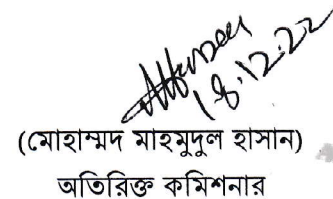 18.12.22
(মোহাম্মদ মাহমুদুল হাসান)
অতিরিক্ত কমিশনার